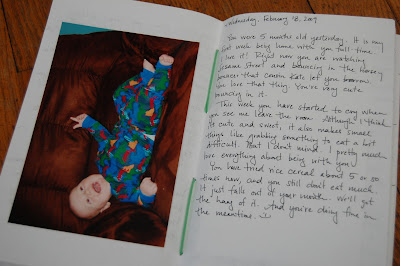 Wednesday, February 18, 2009
You were 5 months old yesterday. It is my
last week being home with you full-time.
I love it! Right now you are watching
Sesame Street and bouncing in the horsey
bouncer that cousin Kate let you borrow.
You love that thing. You're very cute
bouncing in it.
This week you have started to cry when
you see me leave the room. Although I think
it's cute and sweet, it also makes small
things like grabbing something to eat a bit
difficult. But I don't mind. I pretty much
love everything about being with you!
You have tried rice cereal about 5 or 60
times now, and you still don't eat much.
It just falls out of your mouth. We'll get
the hang of it. And you're doing fine in
the meantime.